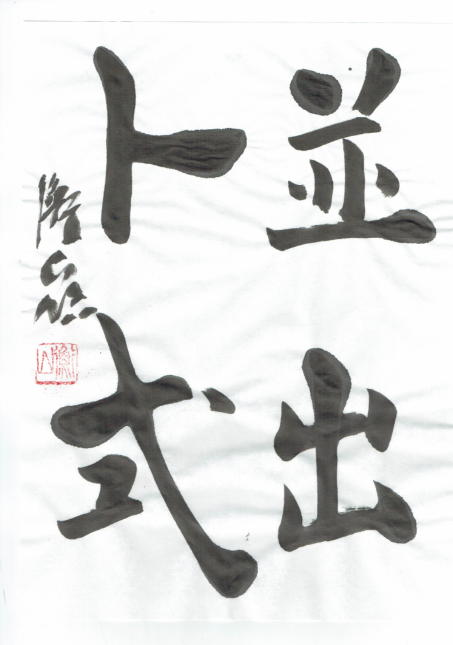 並出
卜式